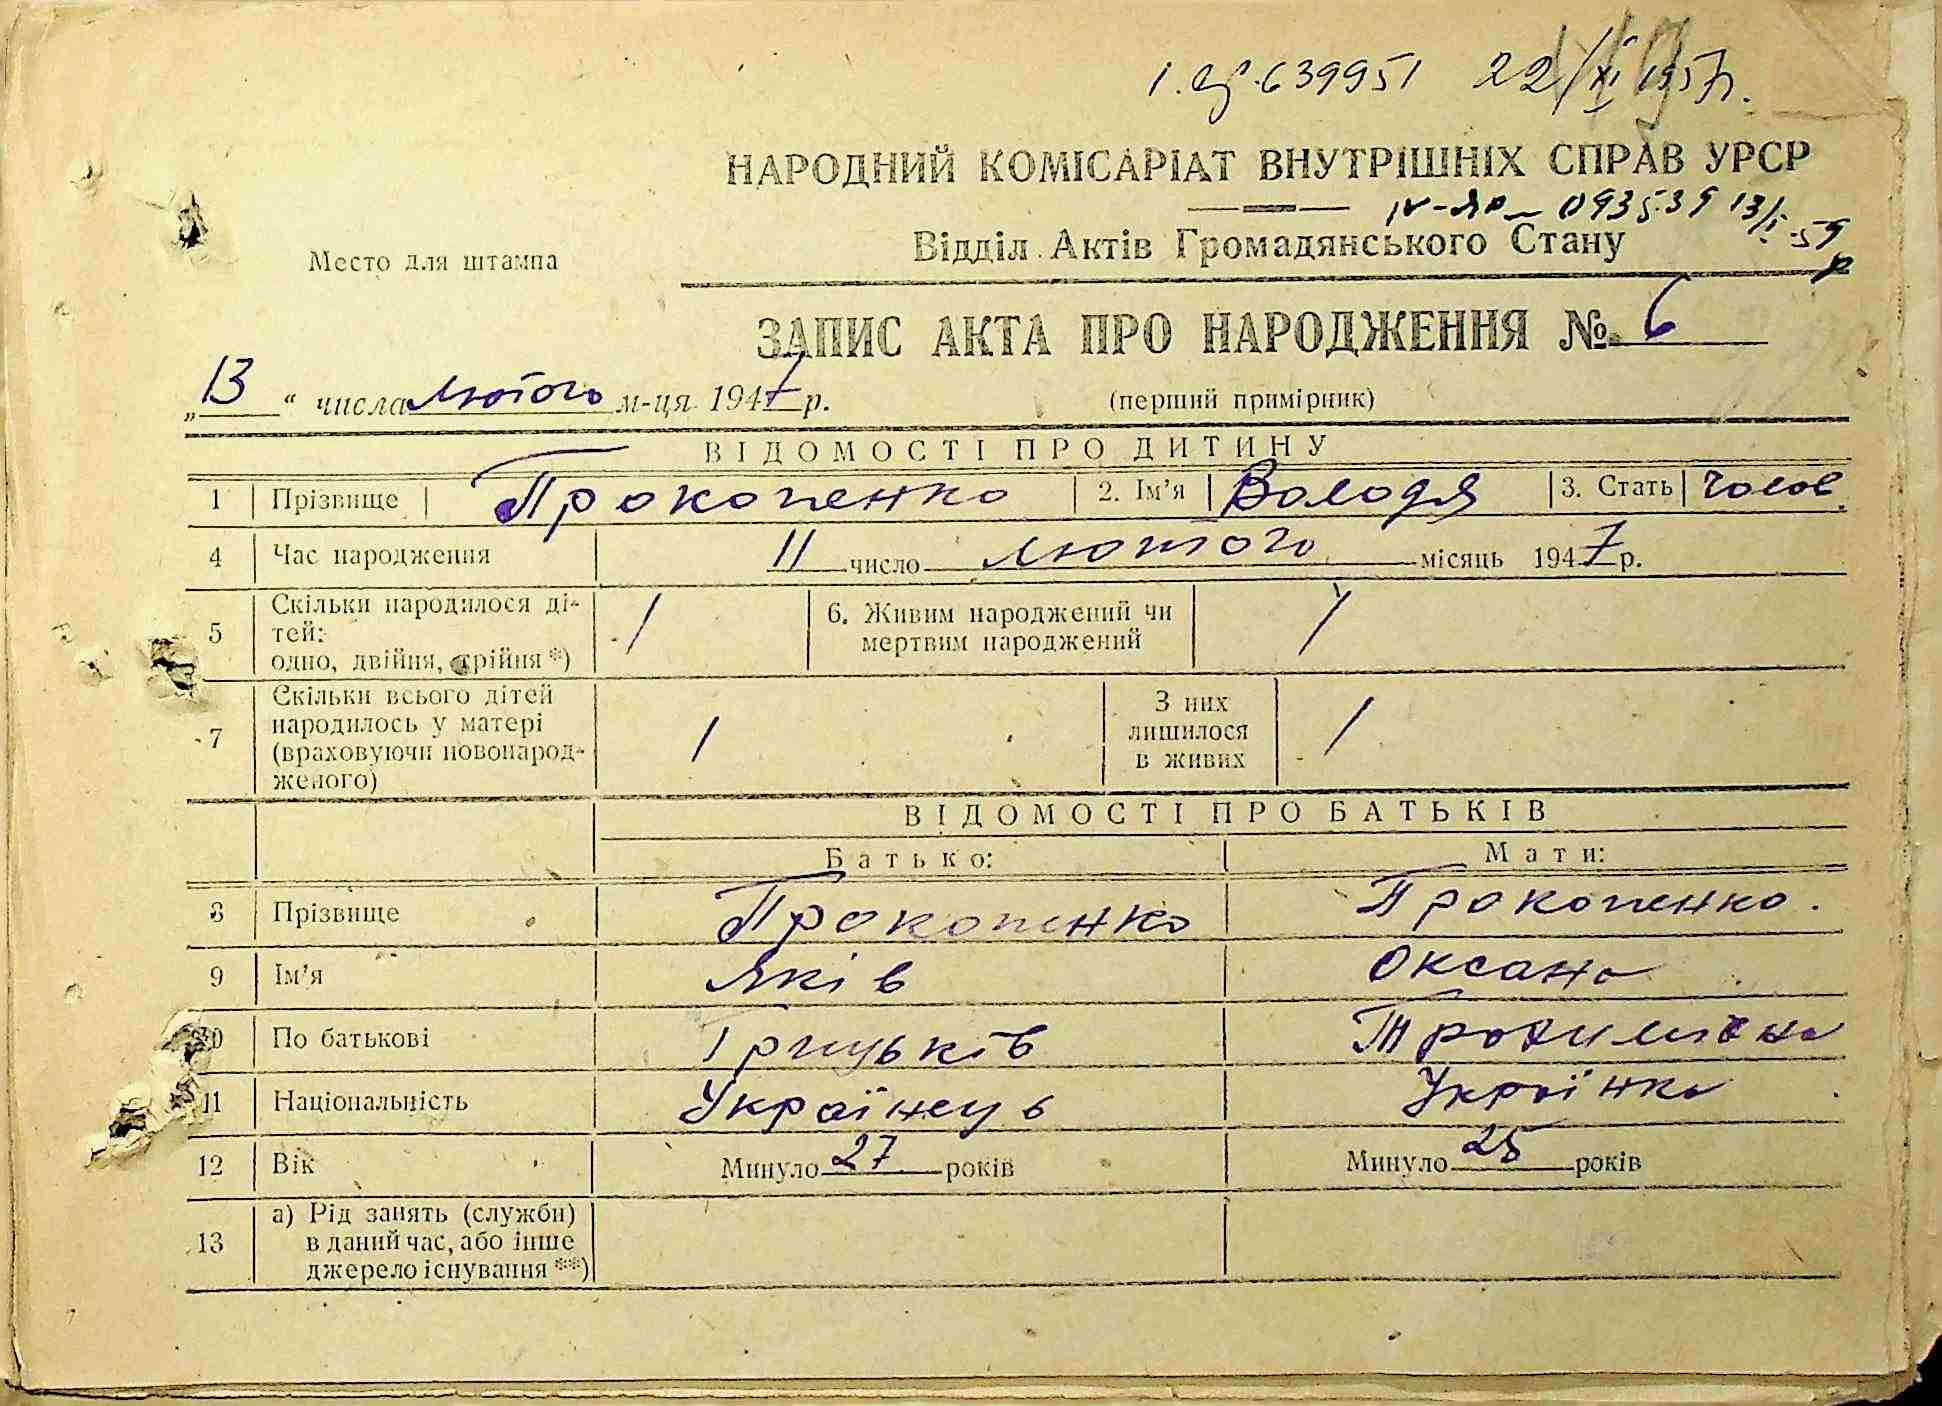 639951 22/XI 1957р.
НАРОДНИЙ КОМІСАРІАТ ВНУТРІШНІХ СПРАВ УРСР
093539 13/I-59
Место для штампа
Відділ Актів Громадянського Стану
ЗАПИС АКТА ПРО НАРОДЖЕННЯ № 6
„13“ числа лютого м-ця 1947 р. (перший примірник)
ВІДОМОСТІ ПРО ДИТИНУ
1 Прізвище Прокопенко 2. Ім'я Володя 3. Стать чолов.
4 Час народження 11 число лютого місяць 1947 р.
5 Скільки народилося ді-
тей:
одно, двійня, трійня *) 1 6. Живим народжений чи
мертвим народжений 1
7 Скільки всього дітей
народилось у матері
(враховуючи новонарод-
женого) 1 З них
лишилося
в живих 1
ВІДОМОСТІ ПРО БАТЬКІВ
Батько: Мати:
8 Прізвище Прокопенко Прокопенко.
9 Ім'я Яків Оксана
10 По батькові Грицьків Трохимівна
11 Національність Українець Українка
12 Вік Минуло 27 років Минуло 25 років
13 а) Рід занять (служби)
в даний час, або інше
джерело існування **)